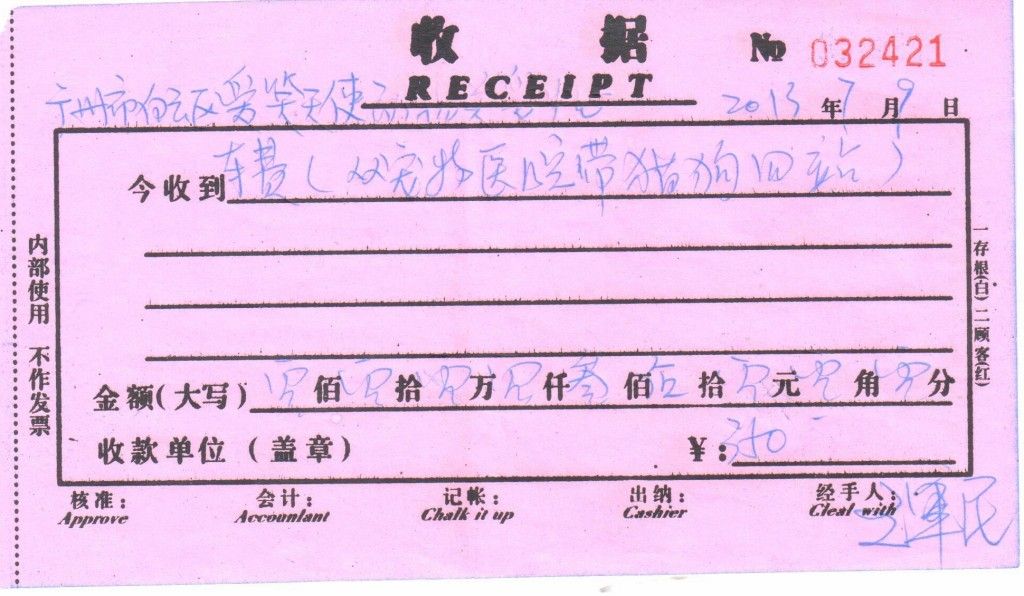 收据
RECEIPT
№ 032421
广州市白云区爱笑天使 2013年7月9日
今收到车费(从宠物医院带猫狗回站)
内部使用 不作发票
一存根(白)二顾客(红)
金额(大写) 佰 拾 万 仟叁佰伍拾 元 角 分
收款单位(盖章) ¥: 350
核准: 会计: 记帐: 出纳: 经手人:
Approve Accounlant Chalk it up Cashier Cleal with